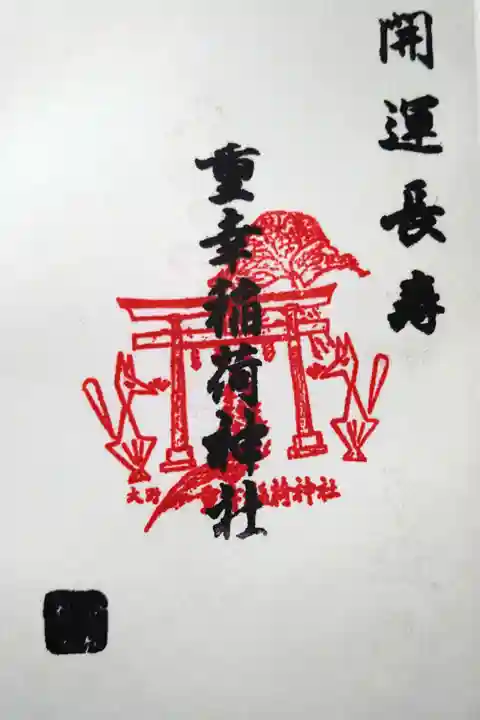 開運長寿
重幸稲荷神社
大野 稲荷神社